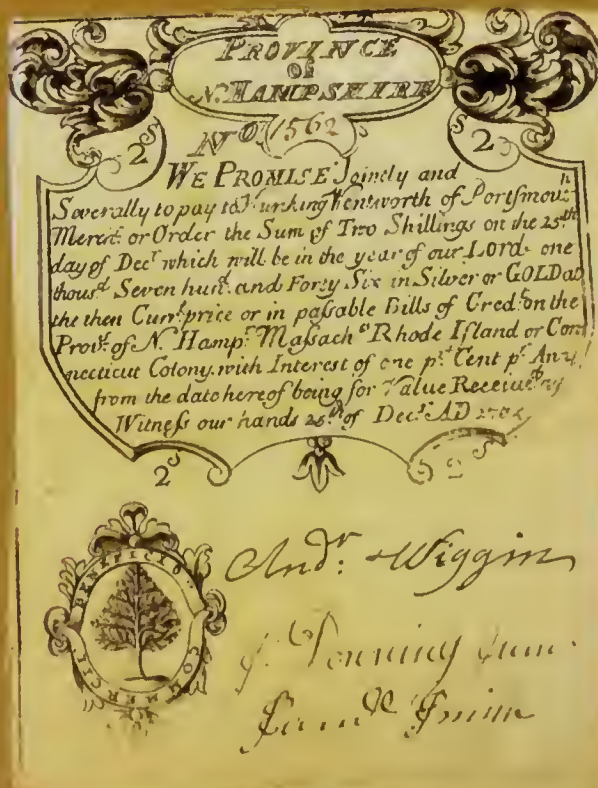 PROVINCE
OF
N. HAMPSHIRE
No. 1562
2s 2s
WE PROMISE Jointly and
Severally to pay to Hunking Wentworth of Portſmouth
Mercht. or Order the Sum of Two Shillings on the 25th
day of Decr. which will be in the year of our LORD one
thousd. Seven hund. and Forty Six in Silver or GOLD at
the then Curr. price or in paſsable Bills of Credt. on the
Prove. of N. Hampr. Maſsachts Rhode Iſland or Con
necticut Colony, with Interest of one pr. Cent pr. Ann.
from the date hereof being for Value Received as
Witneſs our hands 25th of Decr. AD
2s 2s
BENEFICIO
COMMERCII
Andr: Wiggin
Downing Jun